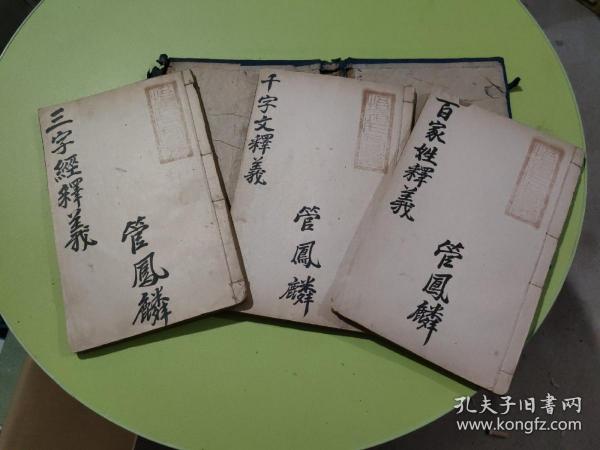 三字經釋義
管鳳麟
千字文釋義
管鳳麟
百家姓釋義
管鳳麟
孔夫子旧书网
www.kongfz.com